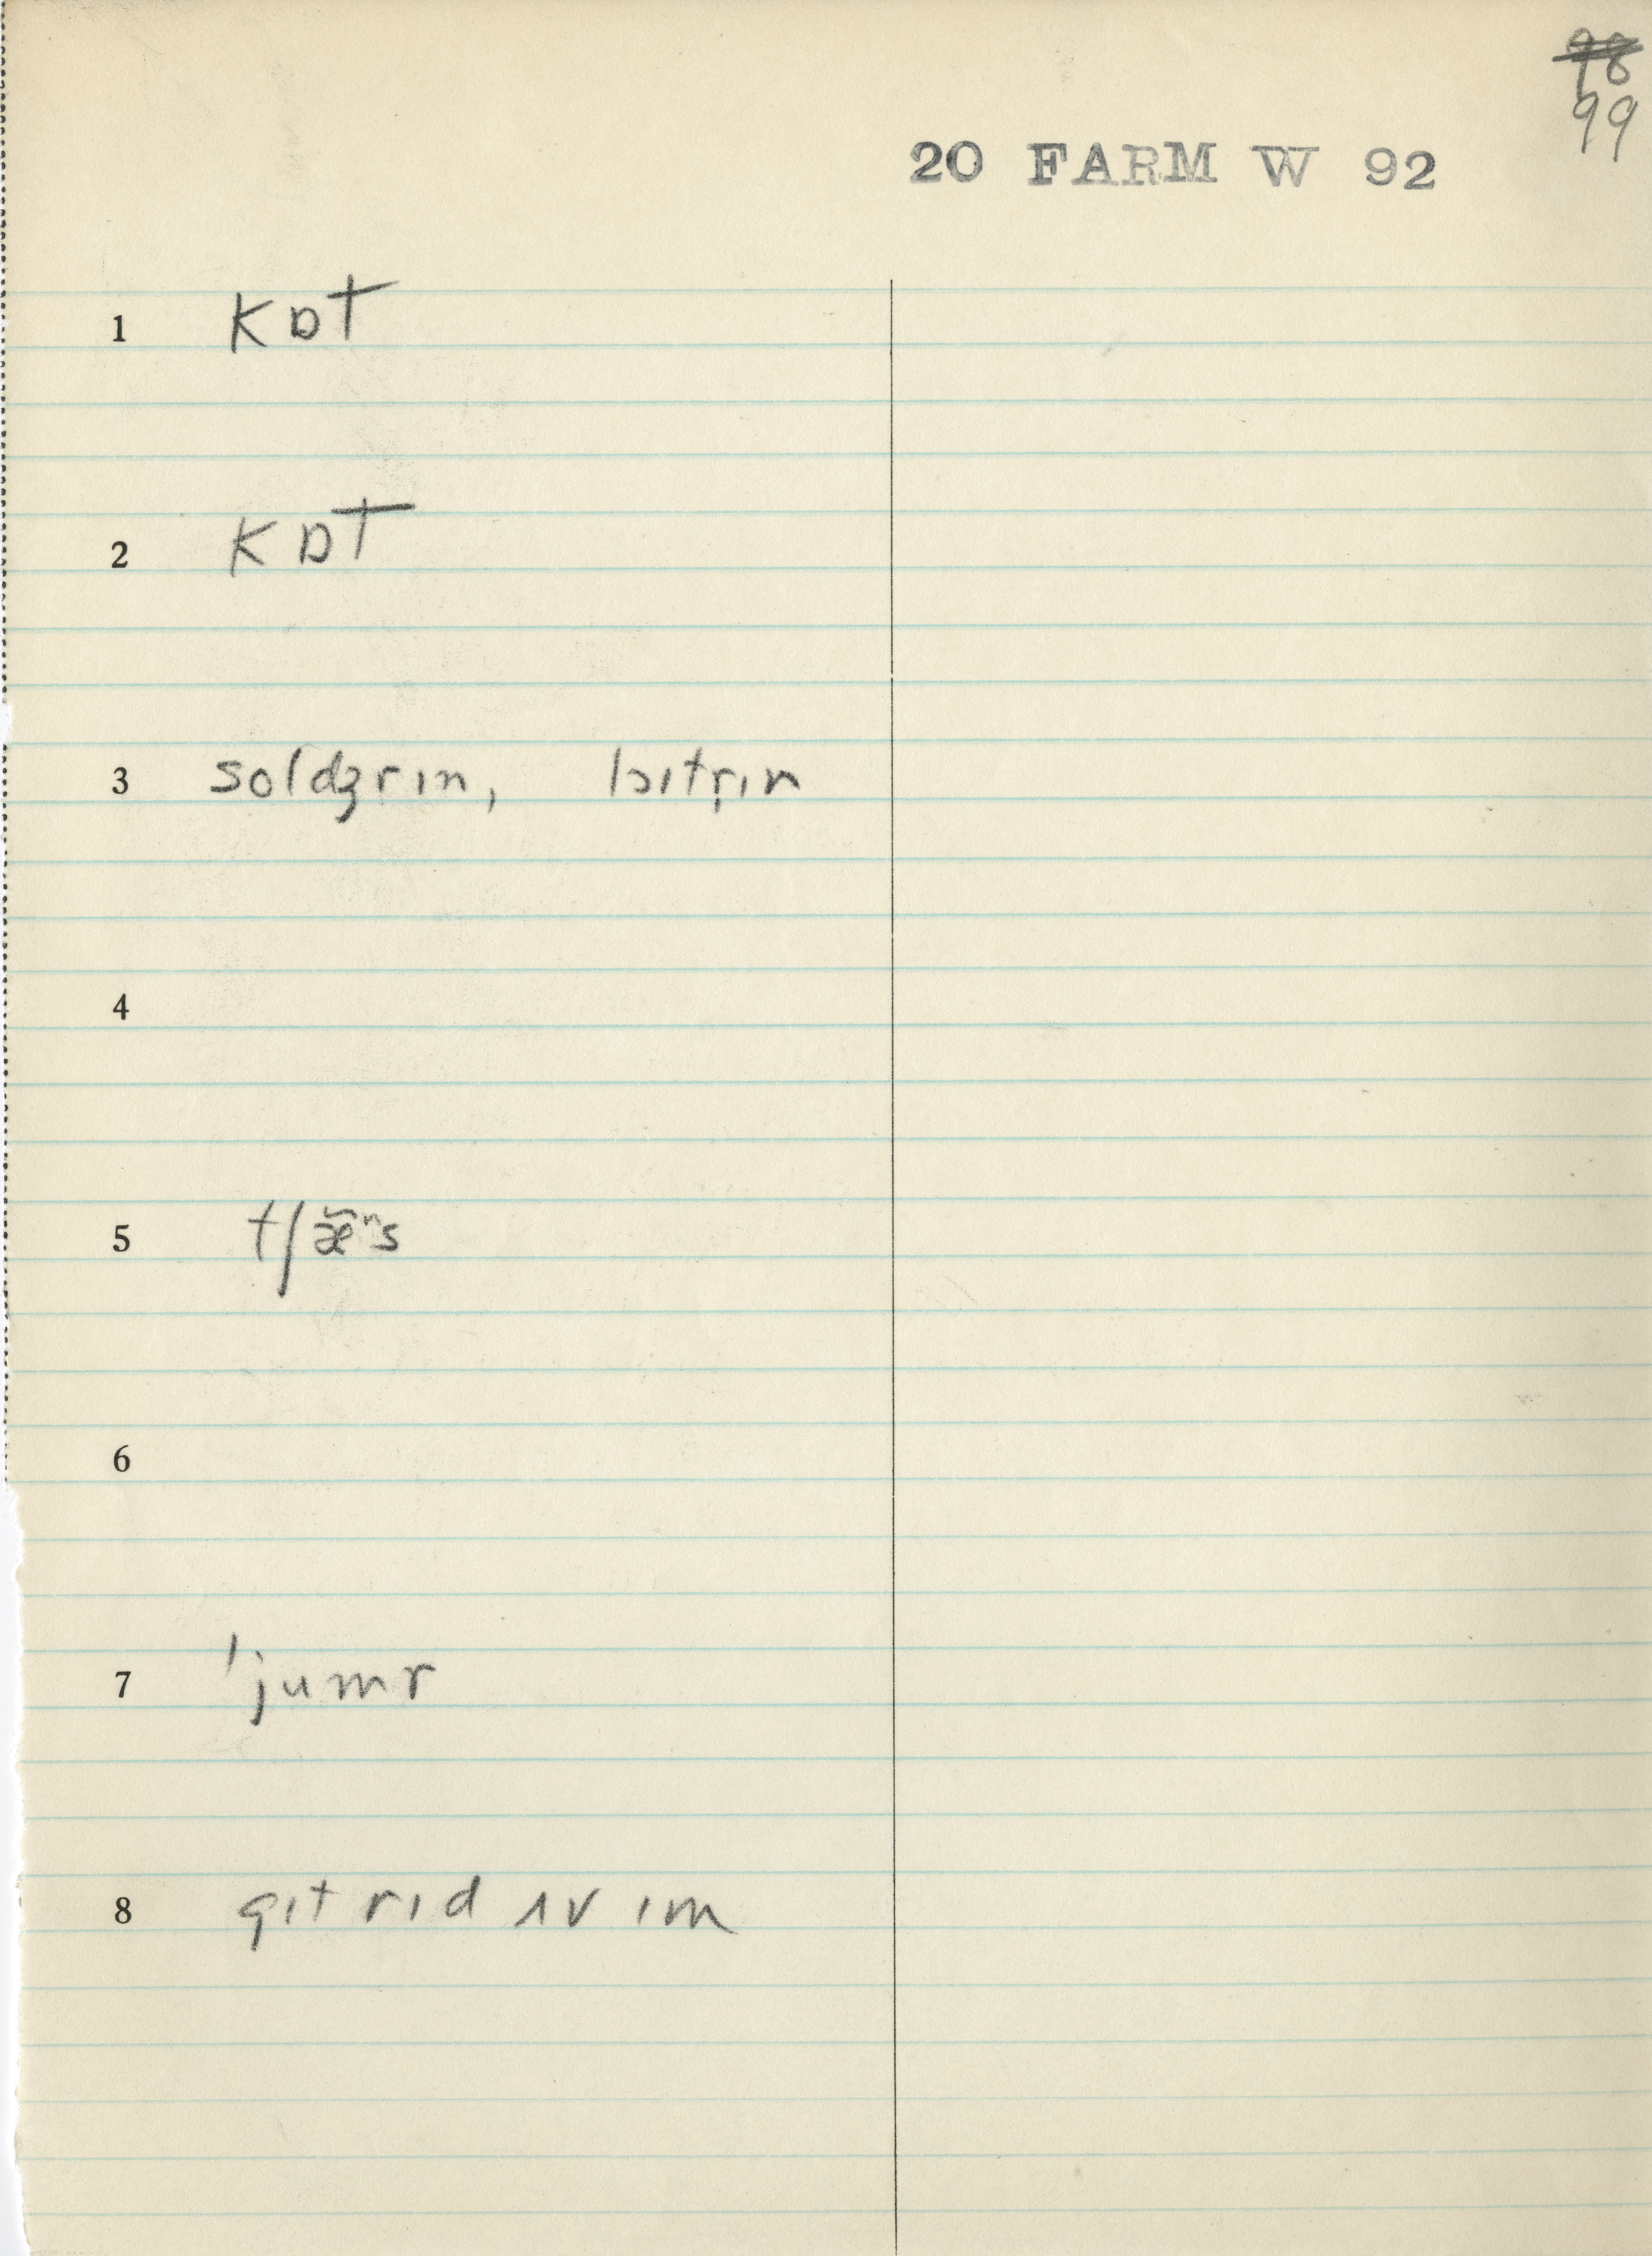 98
99
20 FARM W 92
1 kɒt
2 kɒt
3 soldʒrɪn, lɔɪtrɪn
4
5 tʃæ̃ⁿs
6
7 'jumr
8 gɪt rɪd ʌv ɪm